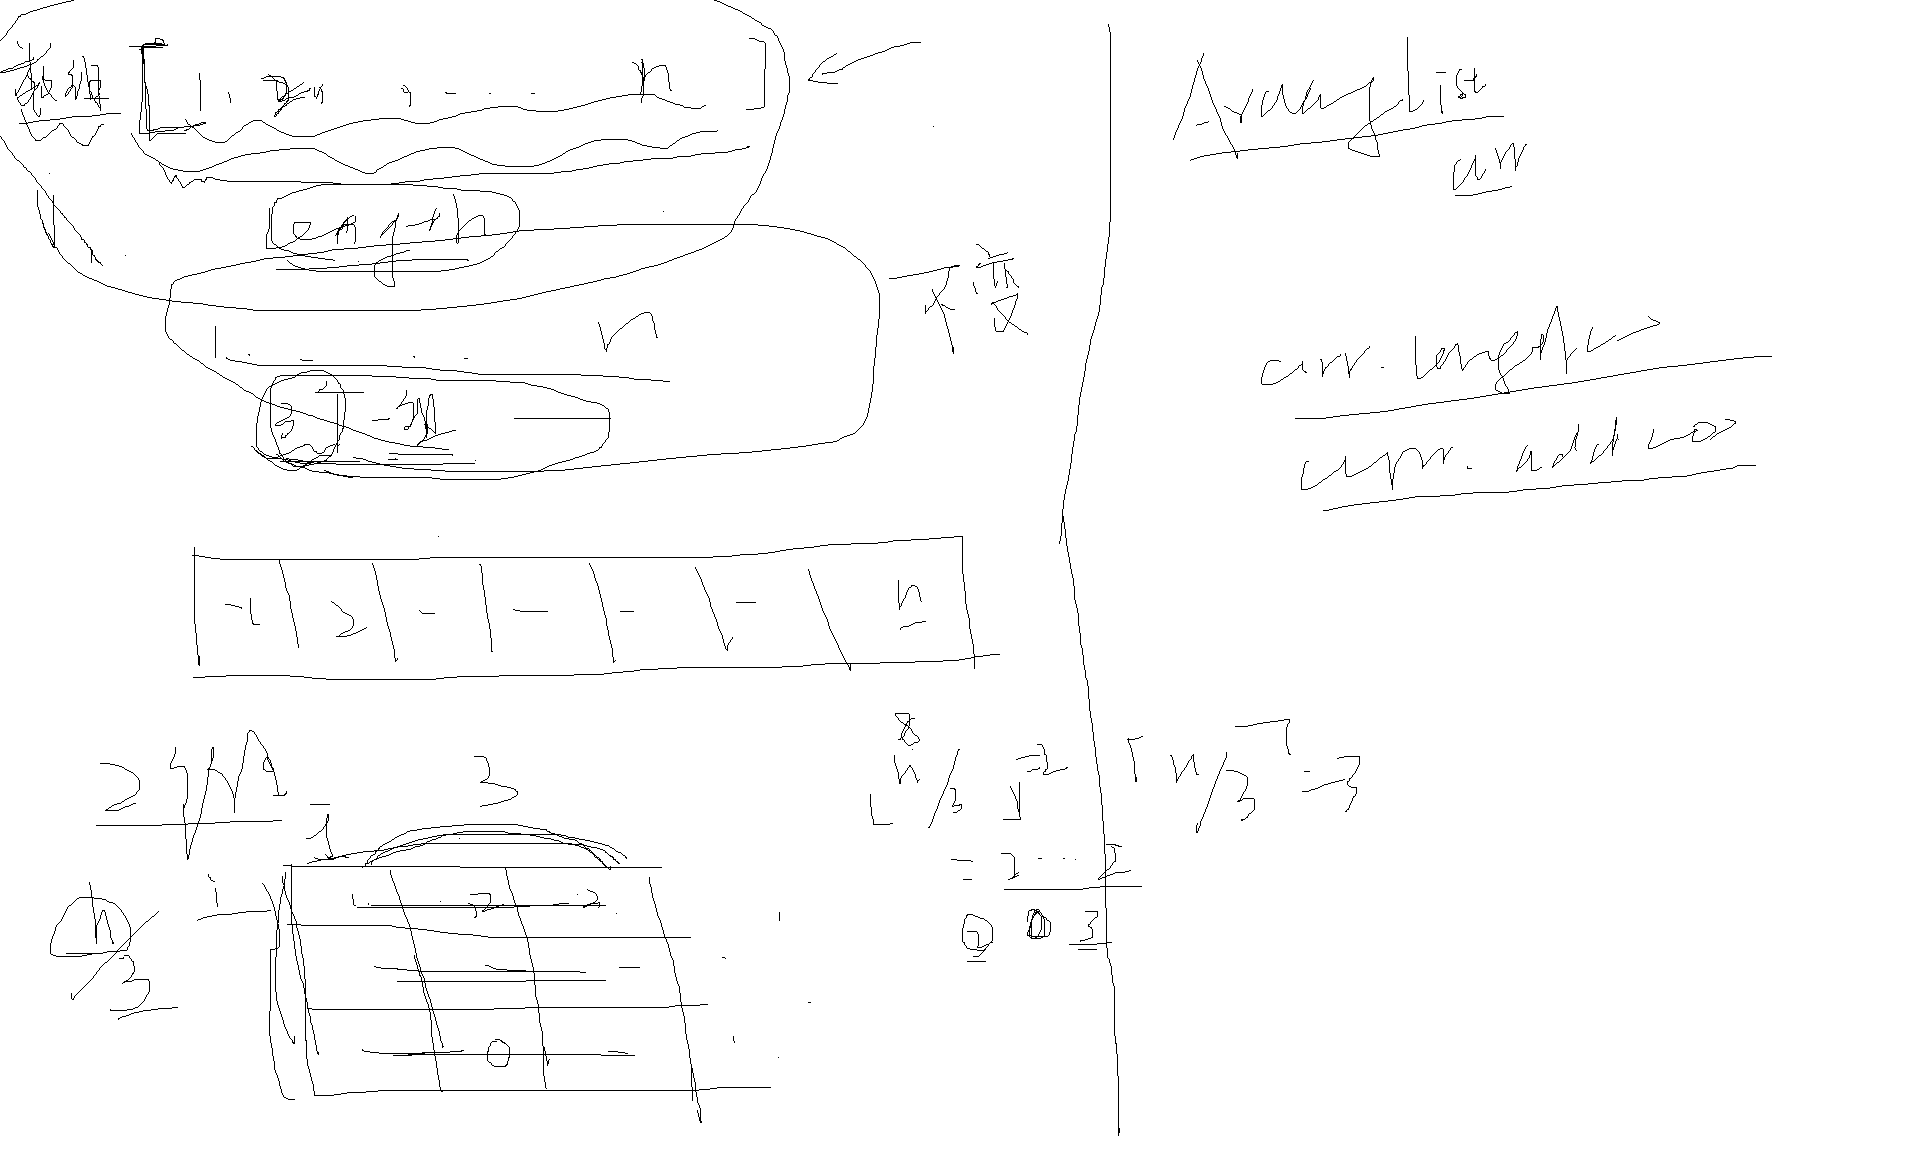 数组 [1, 2, , ... n]
length
1 . - . . n
不变
3个一组
1 2 - - - - - n
2 维
3
j
i
n/3
1 2 3
0
8
⌊n/3⌋=2 ⌈n/3⌉=3
= 2 ... 2
② 0 3
ArrayList
arr
arr. length()
arr. add()